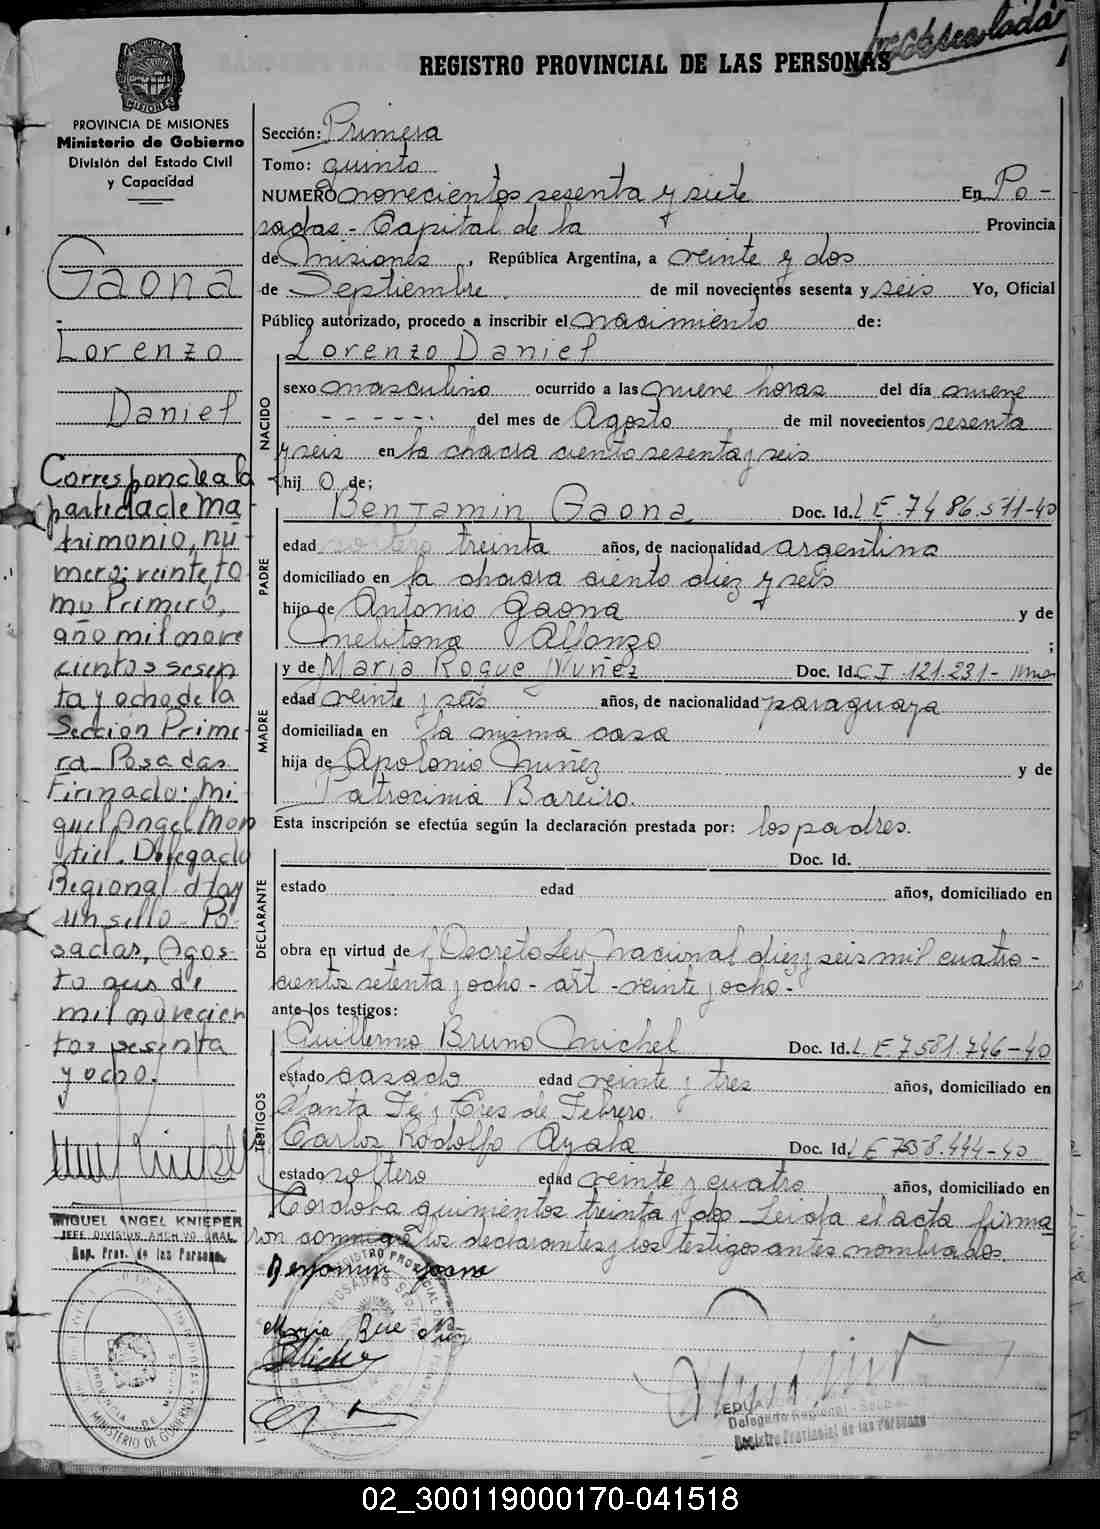 REGISTRO PROVINCIAL DE LAS PERSONAS
PROVINCIA DE MISIONES
Ministerio de Gobierno
División del Estado Civil
y Capacidad
Gaona
Lorenzo
Daniel
Corresponde a la
partida de Ma
trimonio, nú
mero: veinte, to
mo Primero,
año mil nove
cientos sesen
ta y ocho de la
Sección Prime
ra Posadas
Firmado: Mi
guel Angel Mon
tiel. Delegado
Regional. Hay
un sello - Po
sadas, Agos-
to de
mil novecien
tos sesenta
y ocho.
MIGUEL ANGEL KNIEPER
JEFE DIVISION ARCHIVO GRAL.
Rep. Prov. de las Personas
PROVINCIA DE MISIONES
MINISTERIO DE GOBIERNO
Sección: Primera
Tomo: quinto
NUMERO novecientos sesenta y siete En Po-
sadas - Capital de la Provincia
de Misiones, República Argentina, a veinte y dos
de Septiembre de mil novecientos sesenta y seis Yo, Oficial
Público autorizado, procedo a inscribir el nacimiento de:
NACIDO
Lorenzo Daniel
sexo masculino ocurrido a las nueve horas del día nueve
- - - - - del mes de Agosto de mil novecientos sesenta
y seis en la chacra ciento sesenta y seis
hij o de;
PADRE
Benjamin Gaona Doc. Id. L E. 7486.571-40
edad treinta años, de nacionalidad argentino
domiciliado en la chacra ciento diez y seis
hijo de Antonio Gaona y de
Melitona Alfonzo ;
MADRE
y de Maria Roque Nuñez Doc. Id. C I 121.231-
edad veinte y seis años, de nacionalidad paraguaya
domiciliada en la misma casa
hija de Apolonio Nuñez y de
Patrocinia Bareiro.
Esta inscripción se efectúa según la declaración prestada por: los padres.
DECLARANTE
Doc. Id.
estado edad años, domiciliado en
obra en virtud del Decreto Ley Nacional diez y seis mil cuatro-
cientos setenta y ocho - art - veinte y ocho -
ante los testigos:
TESTIGOS
Guillermo Bruno Michel Doc. Id. L E. 7581.746-40
estado casado edad veinte y tres años, domiciliado en
Santa Fé y Tres de Febrero.
Carlos Rodolfo Ayala Doc. Id. L E
estado soltero edad veinte y cuatro años, domiciliado en
Cordoba quinientos treinta y dos - Leida el acta firma
ron conmigo los declarantes y los testigos antes nombrados.
Benjamin Gaona
Maria Rque Nuñz
Delegado Regional
Registro Provincial de las Personas
02_300119000170-041518